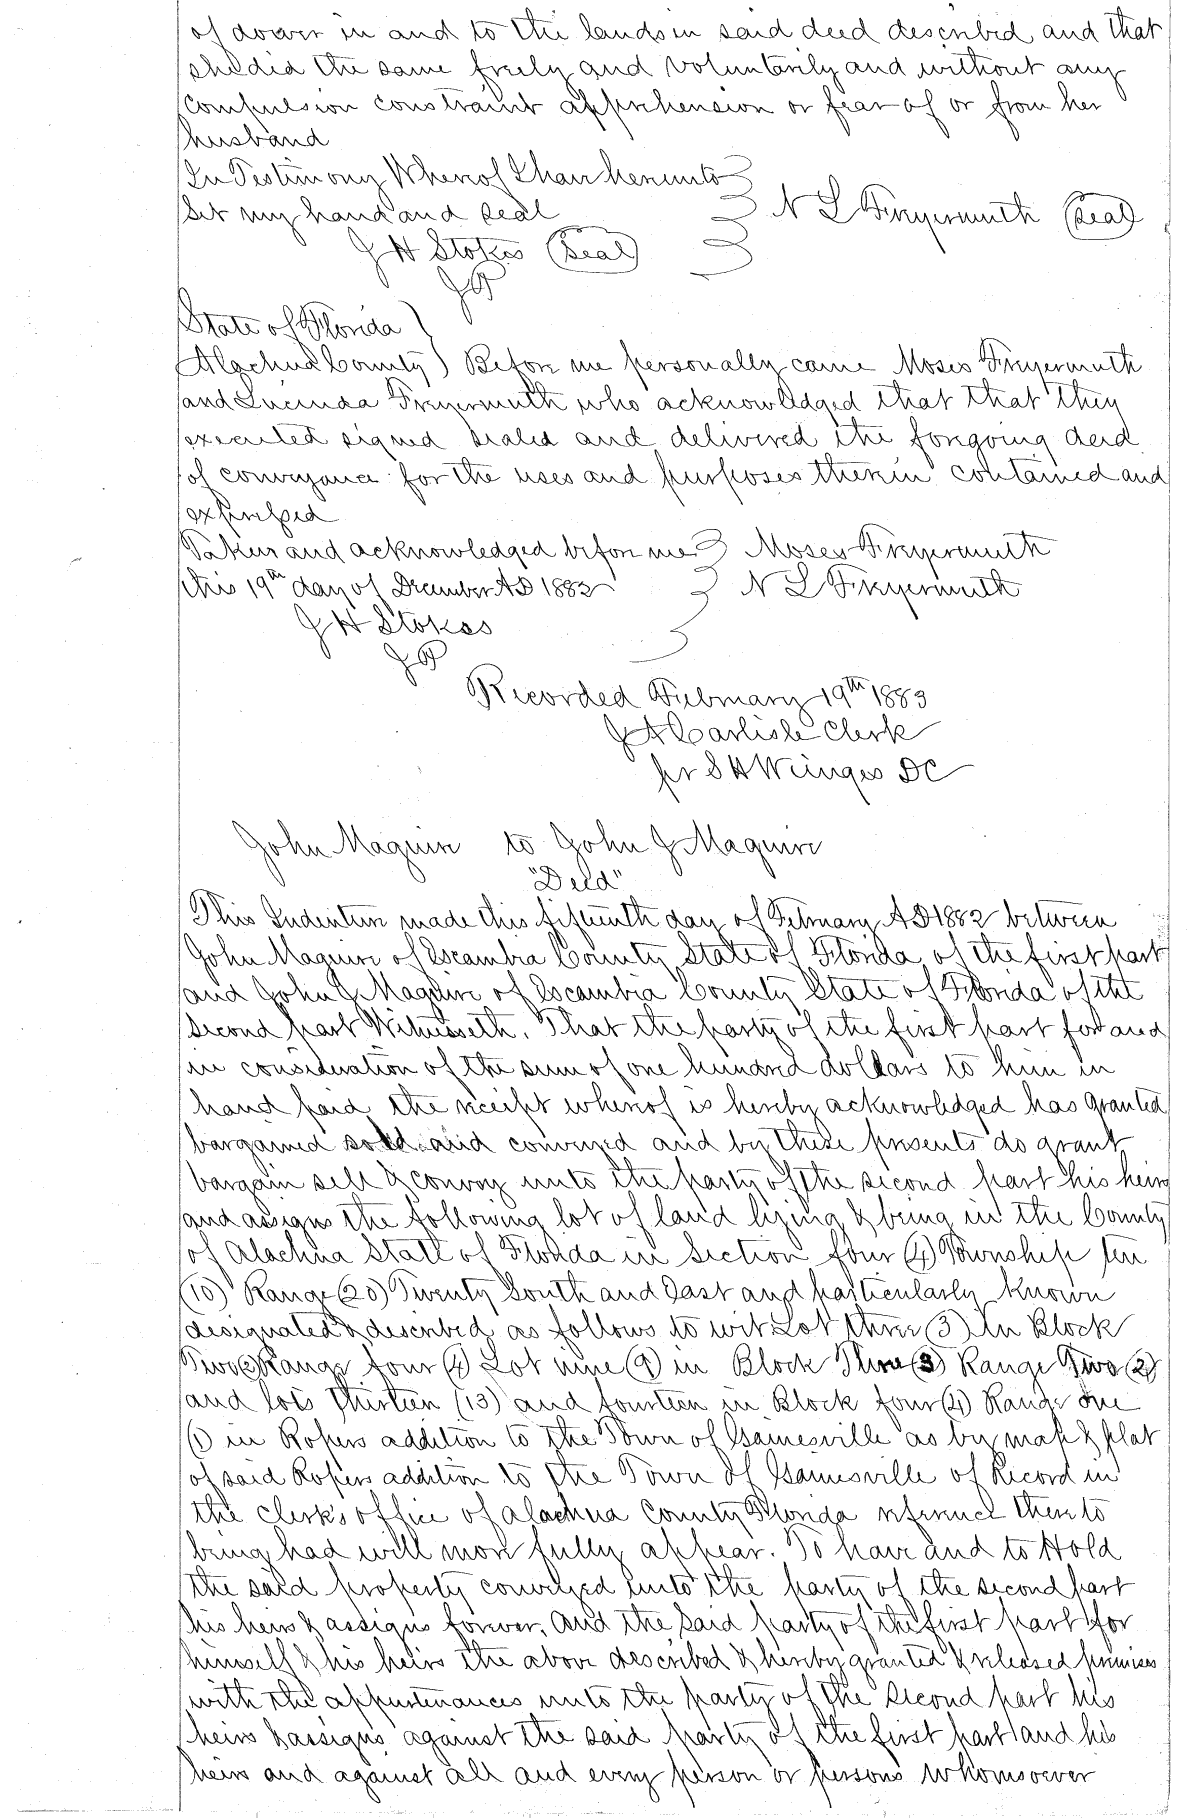 of dower in and to the lands in said deed described and that
she did the same freely and voluntarily and without any
compulsion constraint apprehension or fear of or from her
husband
In Testimony Whereof I have hereunto
Set my hand and seal N L Fryermuth (Seal)
J H Stokes (Seal)
JP
State of Florida )
Alachua County ) Before me personally came Moses Fryermuth
and Lucinda Fryermuth who acknowledged that that they
executed signed sealed and delivered the foregoing deed
of conveyance for the uses and purposes therein contained and
expressed
Taken and acknowledged before me Moses Fryermuth
this 19th day of December AD 1882 N L Fryermuth
J H Stokes
JP
Recorded February 19th 1883
J A Carlisle Clerk
pr S H Wienges DC
John Maguire to John J Maguire
"Deed"
This Indenture made this fifteenth day of February AD 1882 between
John Maguire of Escambia County State of Florida of the first part
and John J Maguire of Escambia County State of Florida of the
second part Witnesseth, That the party of the first part for and
in consideration of the sum of one hundred dollars to him in
hand paid the receipt whereof is hereby acknowledged has granted
bargained sold and conveyed and by these presents do grant
bargain sell & convey unto the party of the second part his heirs
and assigns the following lot of land lying & being in the County
of Alachua State of Florida in Section four (4) Township ten
(10) Range (20) Twenty South and East and particularly known
designated & described as follows to wit Lot three (3) In Block
Two (2) Range four (4) Lot nine (9) in Block Three (3) Range Two (2)
and lots thirteen (13) and fourteen in Block four (4) Range one
(1) in Ropers addition to the Town of Gainesville as by map & plat
of said Ropers addition to the Town of Gainesville of Record in
the clerk's office of Alachua County Florida reference thereto
being had will more fully appear. To have and to Hold
the said property conveyed unto the party of the second part
his heirs & assigns forever, And the Said party of the first part for
himself & his heirs the above described & hereby granted & released premises
with the appurtenances unto the party of the second part his
heirs & assigns against the said party of the first part and his
heirs and against all and every person or persons whomsoever